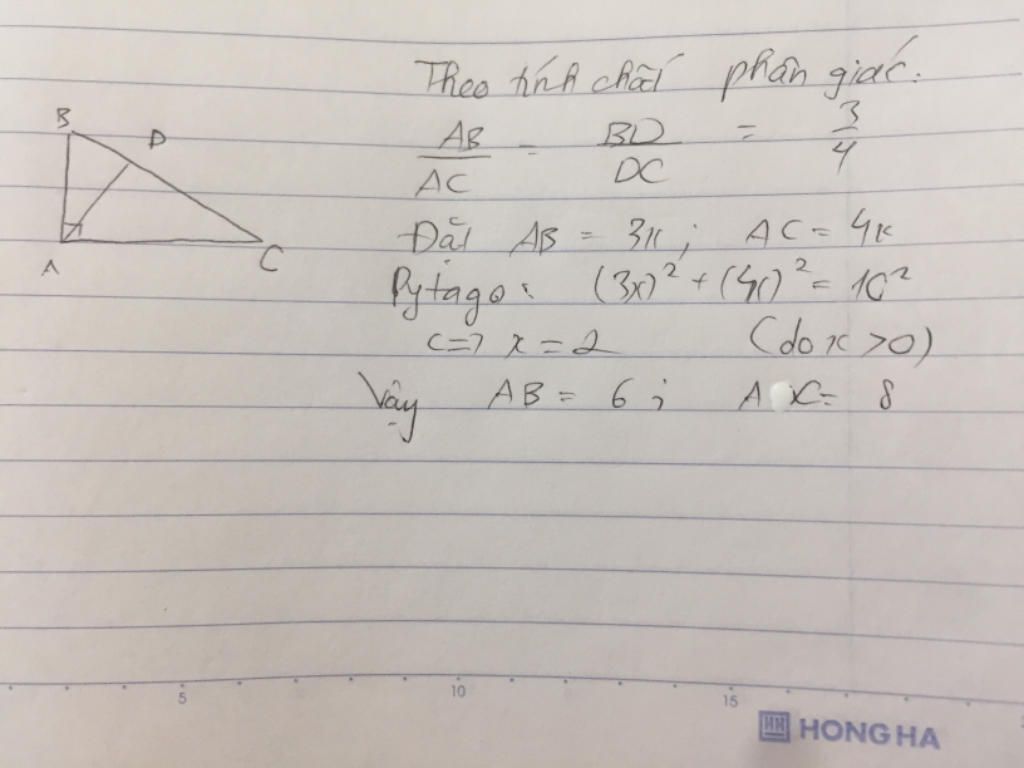 B
D
A
C
Theo tính chất phân giác:
AB/AC = BD/DC = 3/4
Đặt AB = 3x; AC = 4x
Pytago: (3x)² + (4x)² = 10²
<=> x = 2 (do x > 0)
Vậy AB = 6; AC = 8
5 10 15
HONG HA